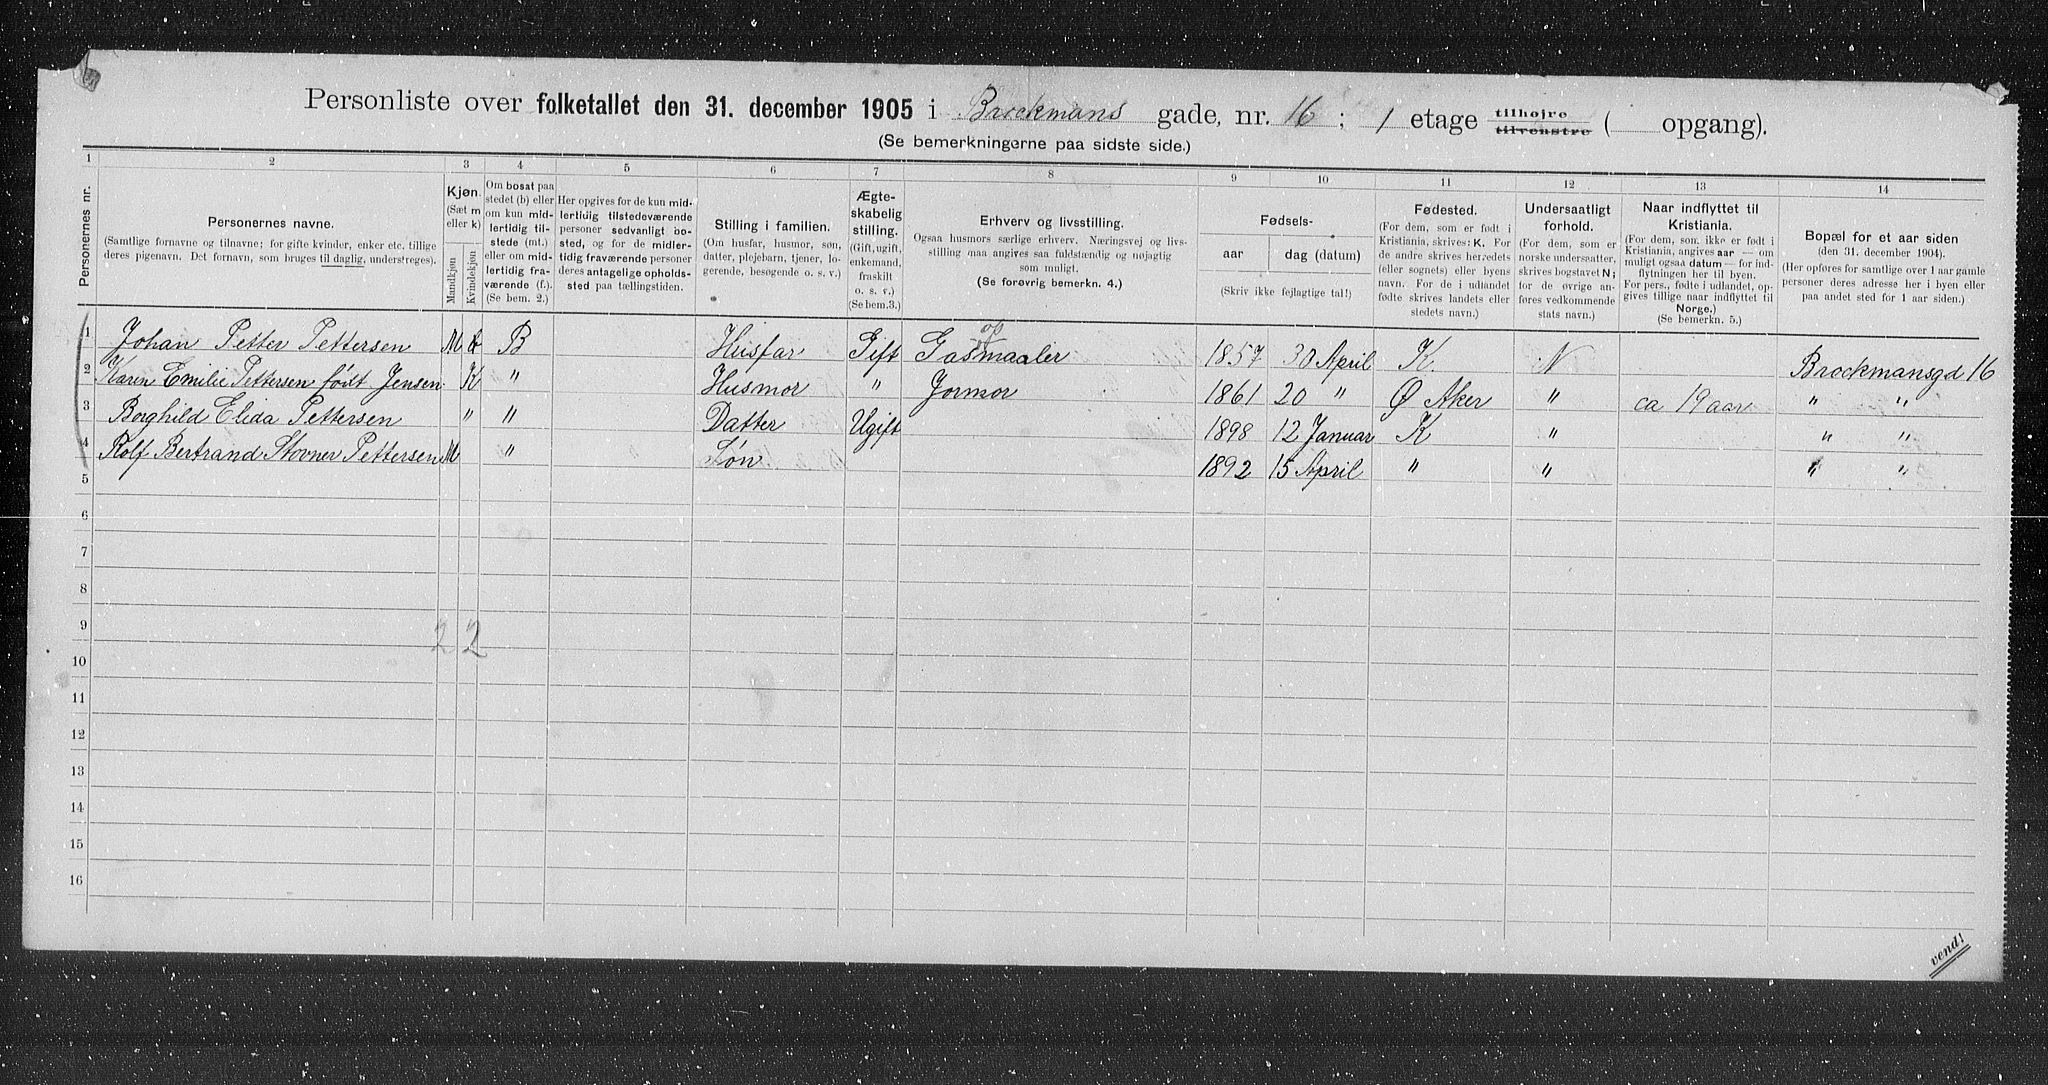 Personliste over folketallet den 31. december 1905 i Brockmans gade, nr. 16; 1 etage tilhøjre tilvenstre ( opgang).
(Se bemerkningerne paa sidste side.)
1 2 3 4 5 6 7 8 9 10 11 12 13 14
Personernes nr.
Personernes navne.
(Samtlige fornavne og tilnavne; for gifte kvinder, enker etc. tillige
deres pigenavn. Det fornavn, som bruges til daglig, understreges).
Kjøn.
(Sæt m
eller k)
Mandkjøn
Kvindekjøn
Om bosat paa
stedet (b) eller
om kun mid-
lertidig til-
stede (mt.)
eller om mid-
lertidig fra-
værende (f.).
(Se bem. 2.)
Her opgives for de kun mid-
lertidig tilstedeværende
personer sedvanligt bo-
sted, og for de midler-
tidig fraværende personer
deres antagelige opholds-
sted paa tællingstiden.
Stilling i familien.
(Om husfar, husmor, søn,
datter, plejebarn, tjener, lo-
gerende, besøgende o. s. v.)
Ægte-
skabelig
stilling.
(Gift, ugift,
enkemand,
fraskilt
o. s. v.)
(Se bem.3.)
Erhverv og livsstilling.
Ogsaa husmors særlige erhverv. Næringsvej og livs-
stilling maa angives saa fuldstændig og nøjagtig
som muligt.
(Se forøvrig bemerkn. 4.)
Fødsels-
aar
dag (datum)
(Skriv ikke fejlagtige tal!)
Fødested.
(For dem, som er født i
Kristiania, skrives: K. For
de andre skrives herredets
(eller sognets) eller byens
navn. For de i udlandet
fødte skrives landets eller
stedets navn.)
Undersaatligt
forhold.
(For dem, som er
norske undersaatter,
skrives bogstavet N;
for de øvrige an-
føres vedkommende
stats navn.)
Naar indflyttet til
Kristiania.
(For dem, som ikke er født i
Kristiania, angives aar — om
muligt ogsaa datum — for ind-
flytningen her til byen.
For pers., fødte i udlandet, op-
gives tillige naar indflyttet til
Norge.)
(Se bemerkn. 5.)
Bopæl for et aar siden
(den 31. december 1904).
(Her opføres for samtlige over 1 aar gamle
personer deres adresse her i byen eller
paa andet sted for 1 aar siden.)
1 Johan Petter Pettersen M B Husfar Gift Gasmaaler op 1857 30 April K. N Brockmansgd 16
2 Karen Emilie Pettersen født Jensen K " Husmor " Jormor 1861 20 " Ø Aker " ca 19 aar " "
3 Borghild Elida Pettersen " " Datter Ugift 1898 12 Januar K " " "
4 Rolf Bertrand Stovner Pettersen M " Søn 1892 15 April " " " "
5
6
7
8
9 2 2
10
11
12
13
14
15
16
vend!